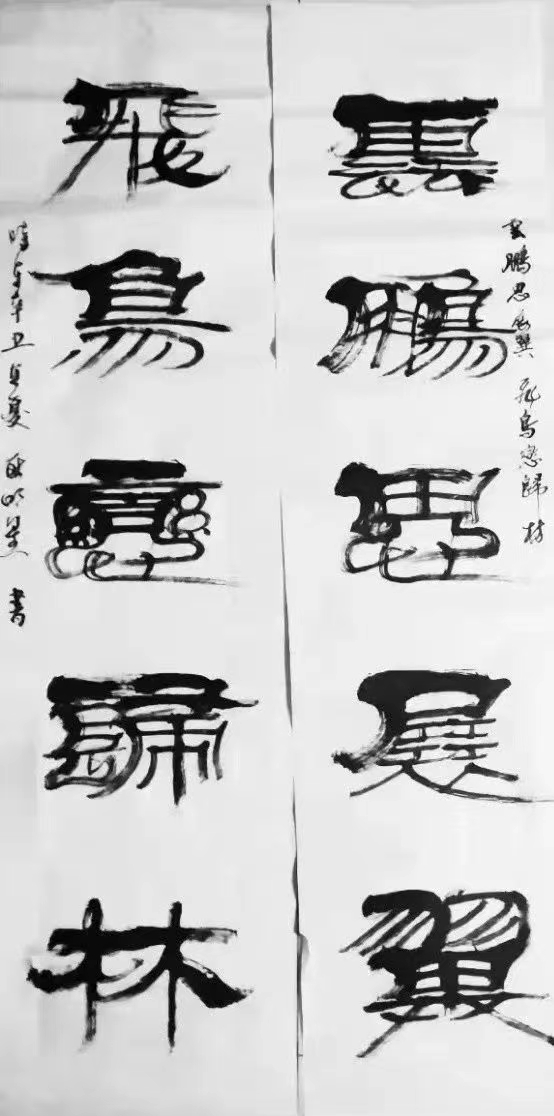 雲鵬思展翼 飛鳥戀歸林
雲鵬思展翼
飛鳥戀歸林
時在辛丑夏書